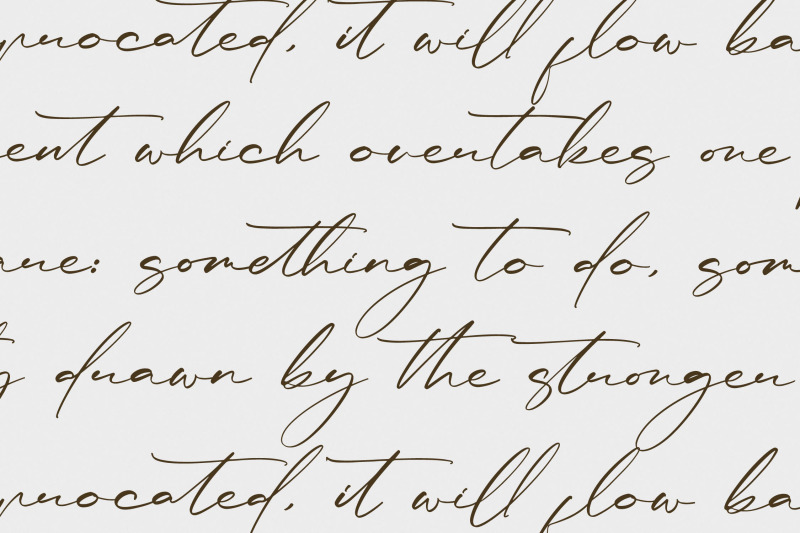 procated, it will flow ba
ent which overtakes one
are: something to do, som
y drawn by the stronger
procated, it will flow ba